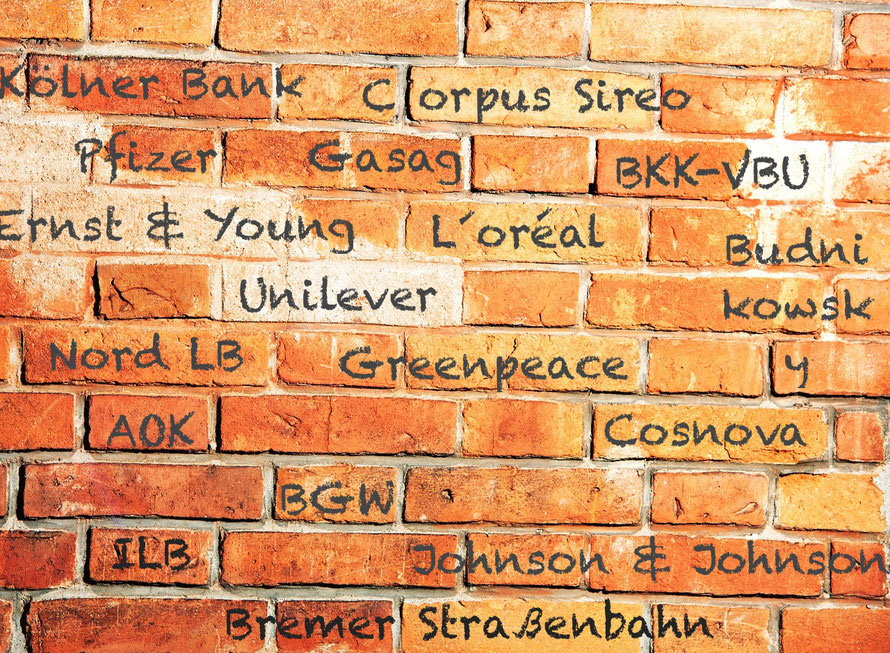 Kölner Bank
C orpus Sireo
Pfizer
Gasag
BKK-VBU
Ernst & Young
L´oréal
Budni
kowsk
y
Unilever
Nord LB
Greenpeace
AOK
Cosnova
BGW
ILB
Johnson & Johnson
Bremer Straßenbahn